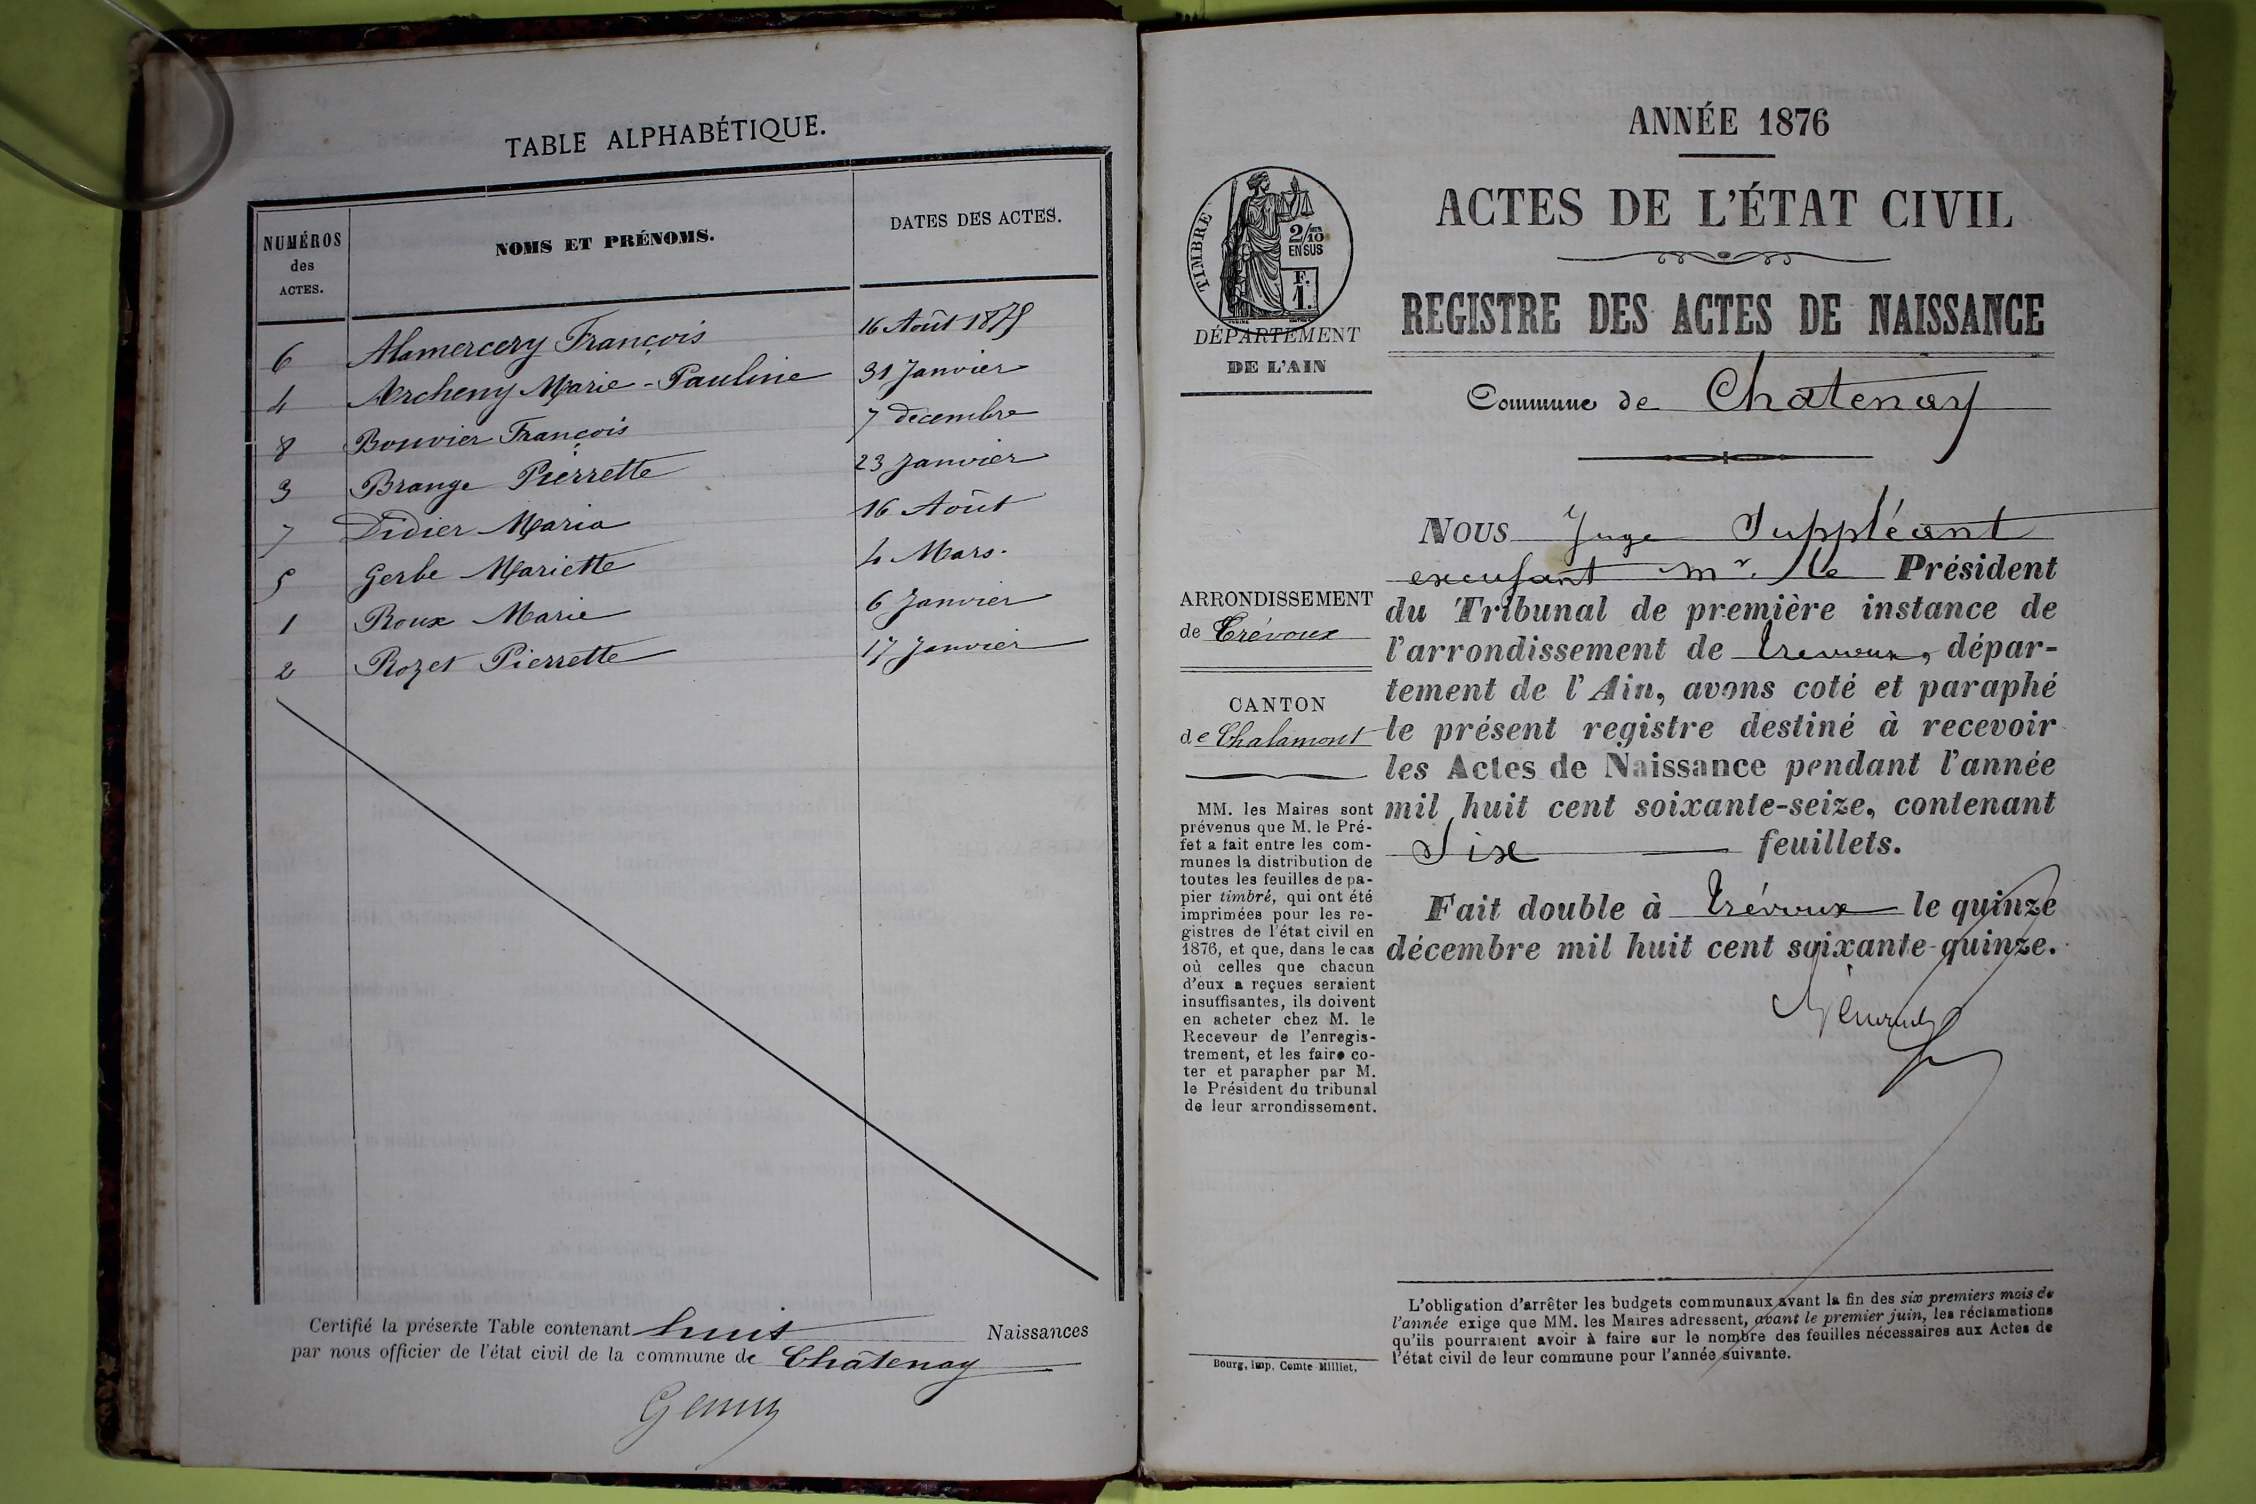 TABLE ALPHABÉTIQUE.
NUMÉROS des ACTES.
NOMS ET PRÉNOMS.
DATES DES ACTES.
6 Alamercery François 16 Août 1875
4 Archeny Marie-Pauline 31 Janvier
8 Bouvier François 7 decembre
3 Brange Pierrette 23 Janvier
7 Didier Maria 16 Août
5 Gerbe Mariette 4 Mars.
1 Roux Marie 6 Janvier
2 Rozet Pierrette 17 Janvier
Certifié la présente Table contenant huit Naissances
par nous officier de l'état civil de la commune de Châtenay
ANNÉE 1876
ACTES DE L'ÉTAT CIVIL
REGISTRE DES ACTES DE NAISSANCE
Commune de Chatenay
TIMBRE
2/10 EN SUS
F. 1.
DÉPARTEMENT
DE L'AIN
ARRONDISSEMENT
de Trévoux
CANTON
de Chalamont
MM. les Maires sont
prévenus que M. le Pré-
fet a fait entre les com-
munes la distribution de
toutes les feuilles de pa-
pier timbré, qui ont été
imprimées pour les re-
gistres de l'état civil en
1876, et que, dans le cas
où celles que chacun
d'eux a reçues seraient
insuffisantes, ils doivent
en acheter chez M. le
Receveur de l'enregis-
trement, et les faire co-
ter et parapher par M.
le Président du tribunal
de leur arrondissement.
Bourg, imp. Comte Milliet.
NOUS Juge Suppléant
excusant Mr. le Président
du Tribunal de première instance de
l'arrondissement de Trevoux, dépar-
tement de l'Ain, avons coté et paraphé
le présent registre destiné à recevoir
les Actes de Naissance pendant l'année
mil huit cent soixante-seize, contenant
Six feuillets.
Fait double à Trévoux le quinze
décembre mil huit cent soixante-quinze.
L'obligation d'arrêter les budgets communaux avant la fin des six premiers mois de
l'année exige que MM. les Maires adressent, avant le premier juin, les réclamations
qu'ils pourraient avoir à faire sur le nombre des feuilles nécessaires aux Actes de
l'état civil de leur commune pour l'année suivante.